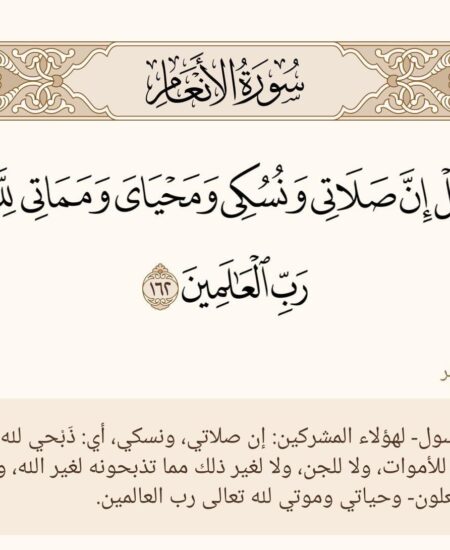 سُورَةُ الأَنْعَامِ
إِنَّ صَلَاتِي وَنُسُكِي وَمَحْيَايَ وَمَمَاتِي
رَبِّ ٱلْعَٰلَمِينَ ١٦٢
سول- لهؤلاء المشركين: إن صلاتي، ونسكي، أي: ذَبْحي لله
للأموات، ولا للجن، ولا لغير ذلك مما تذبحونه لغير الله، و
علون- وحياتي وموتي لله تعالى رب العالمين.